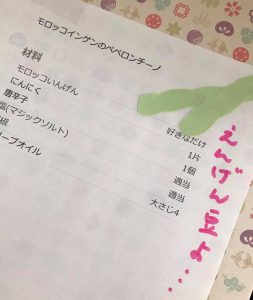 モロッコインゲンのペペロンチーノ
材料
モロッコいんげん 好きなだけ
にんにく 1片
唐辛子 1個
塩(マジックソルト) 適当
椒 適当
ーブオイル 大さじ4
えんげん豆よ...